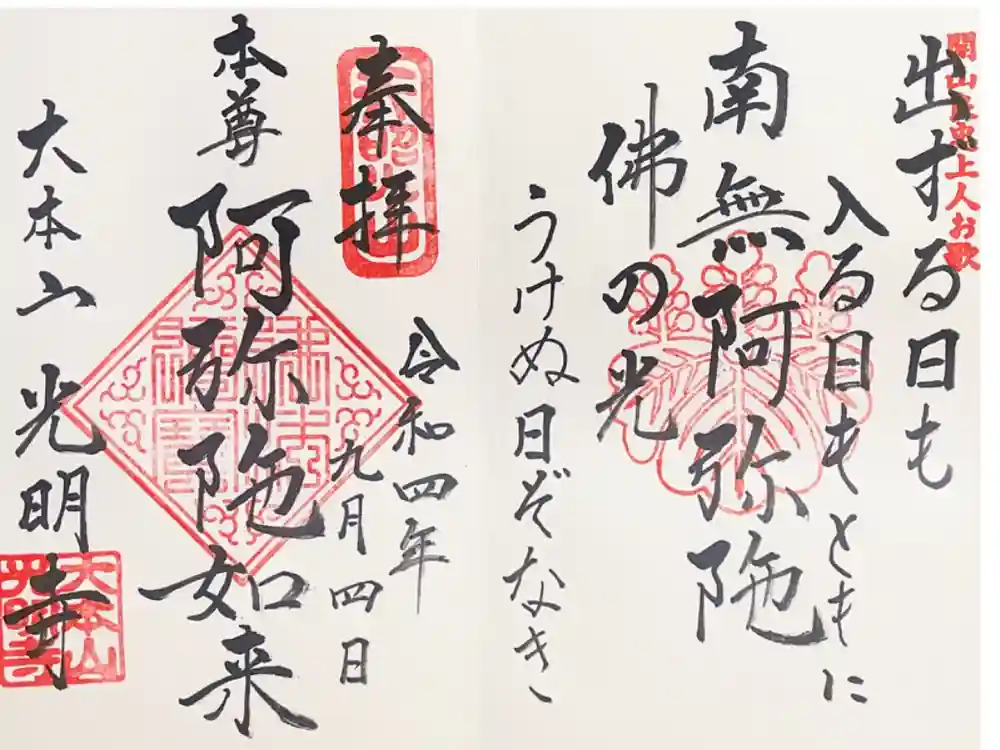 開山良忠上人お歌
出ずる日も
入る日もともに
南無阿弥陀
佛の光
うけぬ日ぞなき
奉拝
令和四年
九月四日
本尊 阿弥陀如来
大本山 光明寺
大本山
光明寺